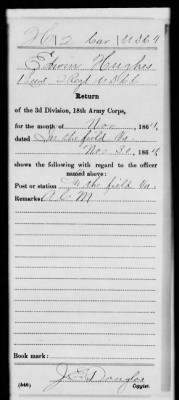 H 2 Cav U.S.C.T.
Edwin Hughes
1 Lieut 2 Regt U.S.C.C.
Return
of the 3d Division, 18th Army Corps,
for the month of Nov, 1864,
dated In the field Va
Nov 30, 1864,
shows the following with regard to the officer
named above:
Post or station In the field Va.
Remarks: A.C.M
Book mark:
J. E. Douglas
(546) Copyist.